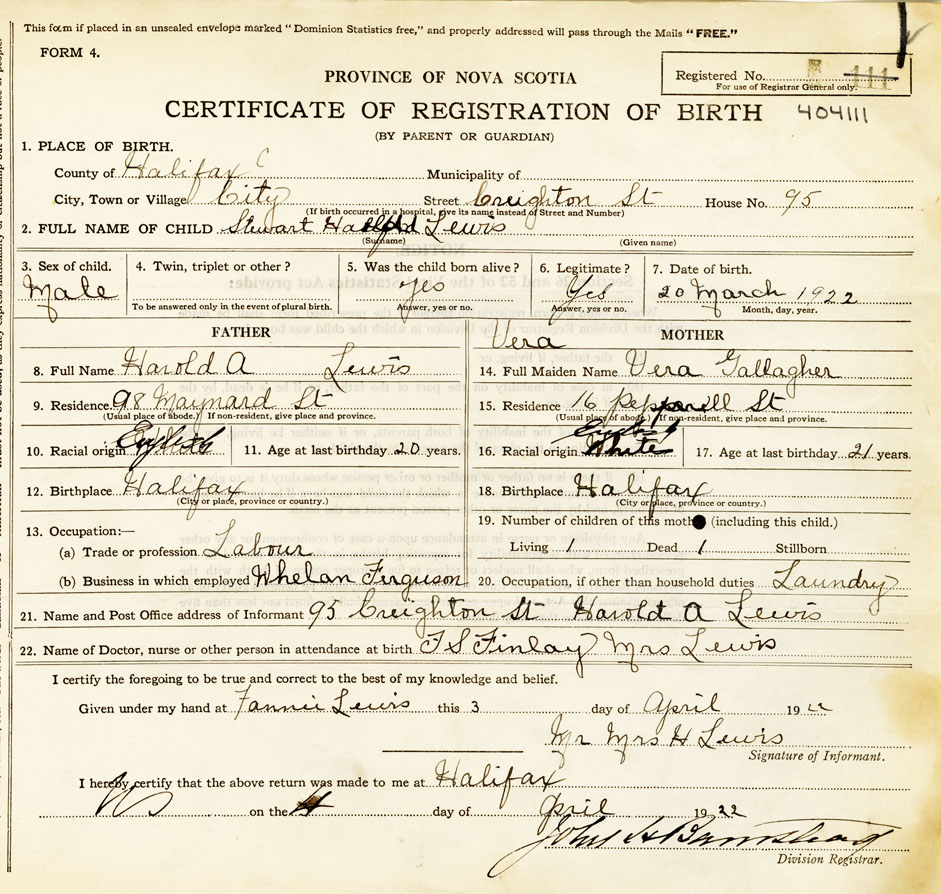 This form if placed in an unsealed envelope marked "Dominion Statistics free," and properly addressed will pass through the Mails "FREE."
FORM 4.
PROVINCE OF NOVA SCOTIA
Registered No. 111
For use of Registrar General only.
CERTIFICATE OF REGISTRATION OF BIRTH 404111
(BY PARENT OR GUARDIAN)
1. PLACE OF BIRTH.
County of Halifax C Municipality of
City, Town or Village City Street Creighton St House No. 95
(If birth occurred in a hospital, give its name instead of Street and Number)
2. FULL NAME OF CHILD Stewart Harold Lewis
(Surname) (Given name)
3. Sex of child. 4. Twin, triplet or other? 5. Was the child born alive? 6. Legitimate? 7. Date of birth.
Male Yes Yes 20 March 1922
To be answered only in the event of plural birth. Answer, yes or no. Answer, yes or no. Month, day, year.
Vera
FATHER MOTHER
8. Full Name Harold A Lewis 14. Full Maiden Name Vera Gallagher
9. Residence 98 Maynard St 15. Residence 16 Pepperell St
(Usual place of abode.) If non-resident, give place and province. (Usual place of abode.) If non-resident, give place and province.
English English
10. Racial origin 11. Age at last birthday 20 years. 16. Racial origin White 17. Age at last birthday 21 years.
12. Birthplace Halifax 18. Birthplace Halifax
(City or place, province or country.) (City or place, province or country.)
13. Occupation:— 19. Number of children of this mother (including this child.)
(a) Trade or profession Labour Living 1 Dead 1 Stillborn
(b) Business in which employed Whelan Ferguson 20. Occupation, if other than household duties Laundry
21. Name and Post Office address of Informant 95 Creighton St Harold A Lewis
22. Name of Doctor, nurse or other person in attendance at birth F S Finlay Mrs Lewis
I certify the foregoing to be true and correct to the best of my knowledge and belief.
Given under my hand at Fannie Lewis this 3 day of April 1922
Mr Mrs H Lewis
Signature of Informant.
I hereby certify that the above return was made to me at Halifax
on the 4 day of April 1922
John H Barnstead
Division Registrar.